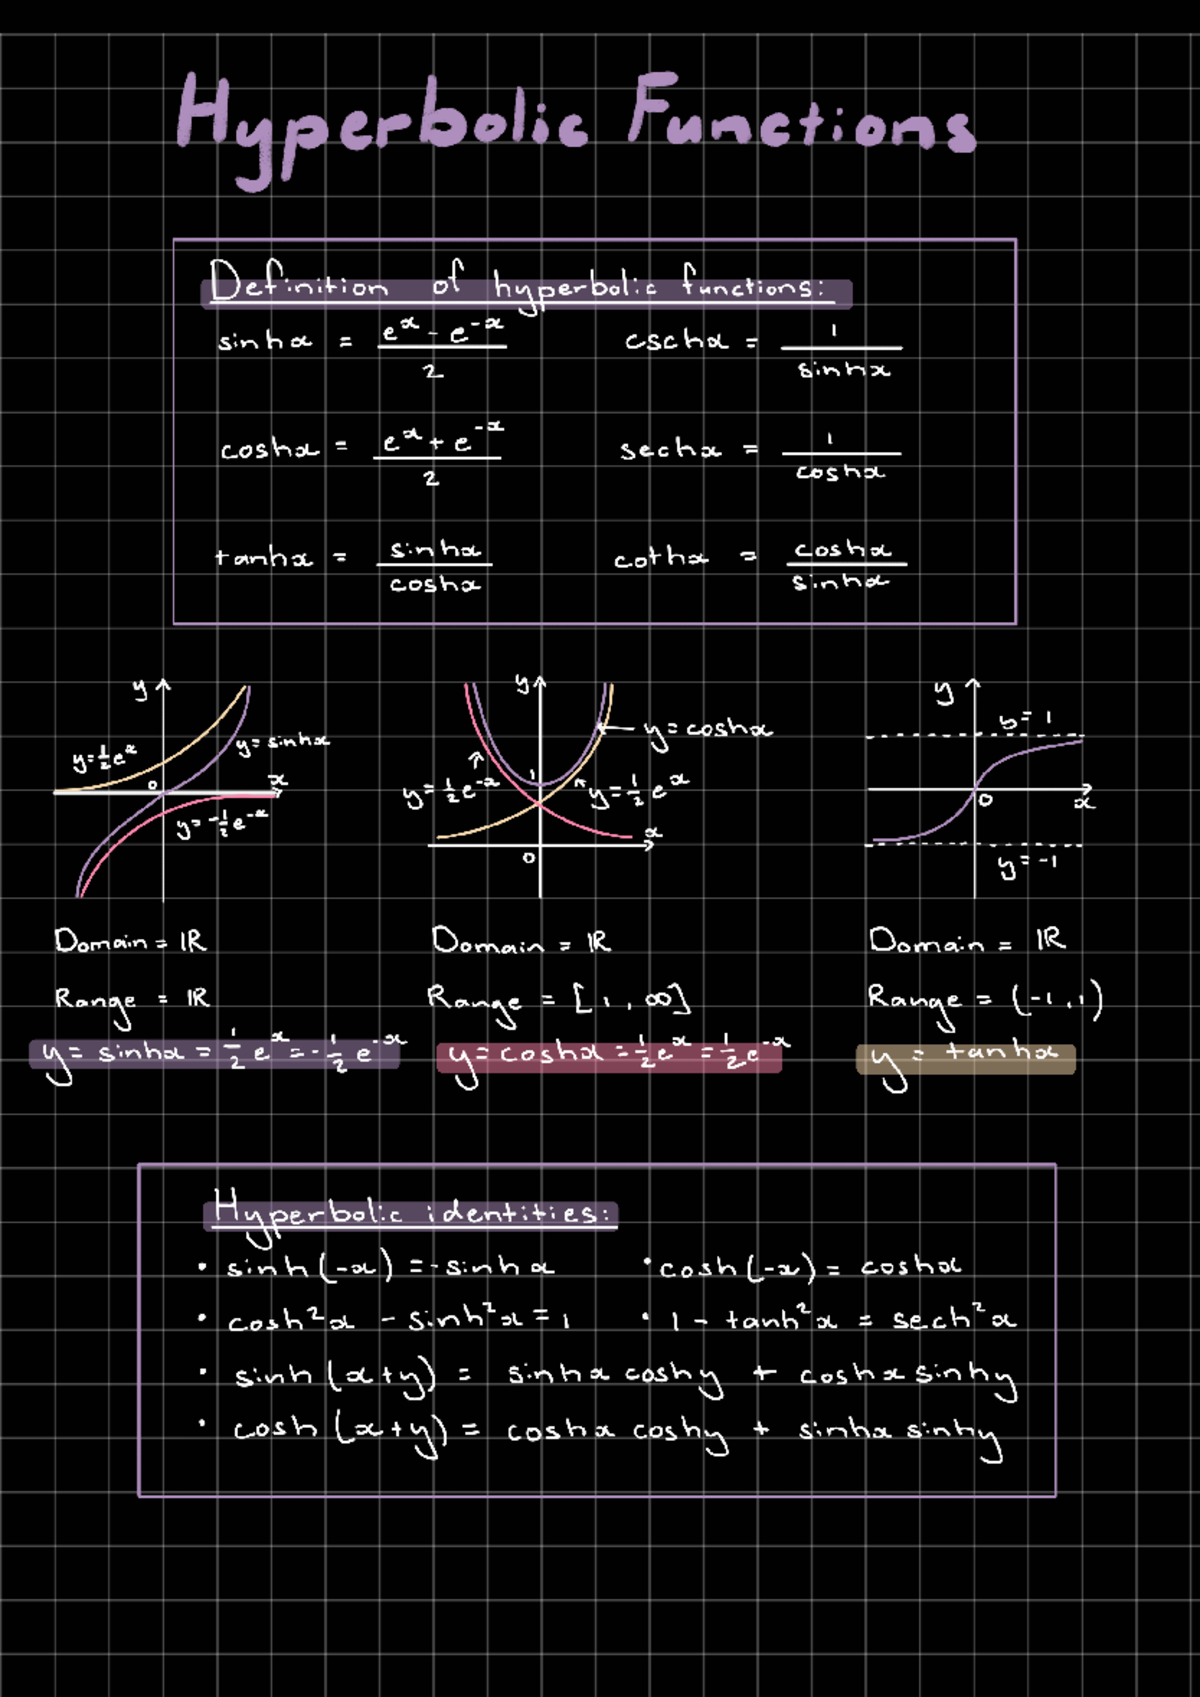 Hyperbolic Functions
Definition of hyperbolic functions:
sinhx = (e^x - e^-x)/2    cschx = 1/sinhx
coshx = (e^x + e^-x)/2    sechx = 1/coshx
tanhx = sinhx/coshx    cothx = coshx/sinhx
y y=½e^x y=sinhx x 0 y=-½e^-x
y y=coshx 1 y=½e^-x y=½e^x x 0
y y=1 0 x y=-1
Domain = ℝ    Domain = ℝ    Domain = ℝ
Range = ℝ    Range = [1, ∞]    Range = (-1,1)
y= sinhx = ½e^x = -½e^-x    y= coshx = ½e^x = ½e^-x    y = tanhx
Hyperbolic identities:
• sinh(-x) = -sinhx    • cosh(-x) = coshx
• cosh²x - sinh²x = 1    • 1 - tanh²x = sech²x
• sinh(x+y) = sinhx coshy + coshx sinhy
• cosh(x+y) = coshx coshy + sinhx sinhy